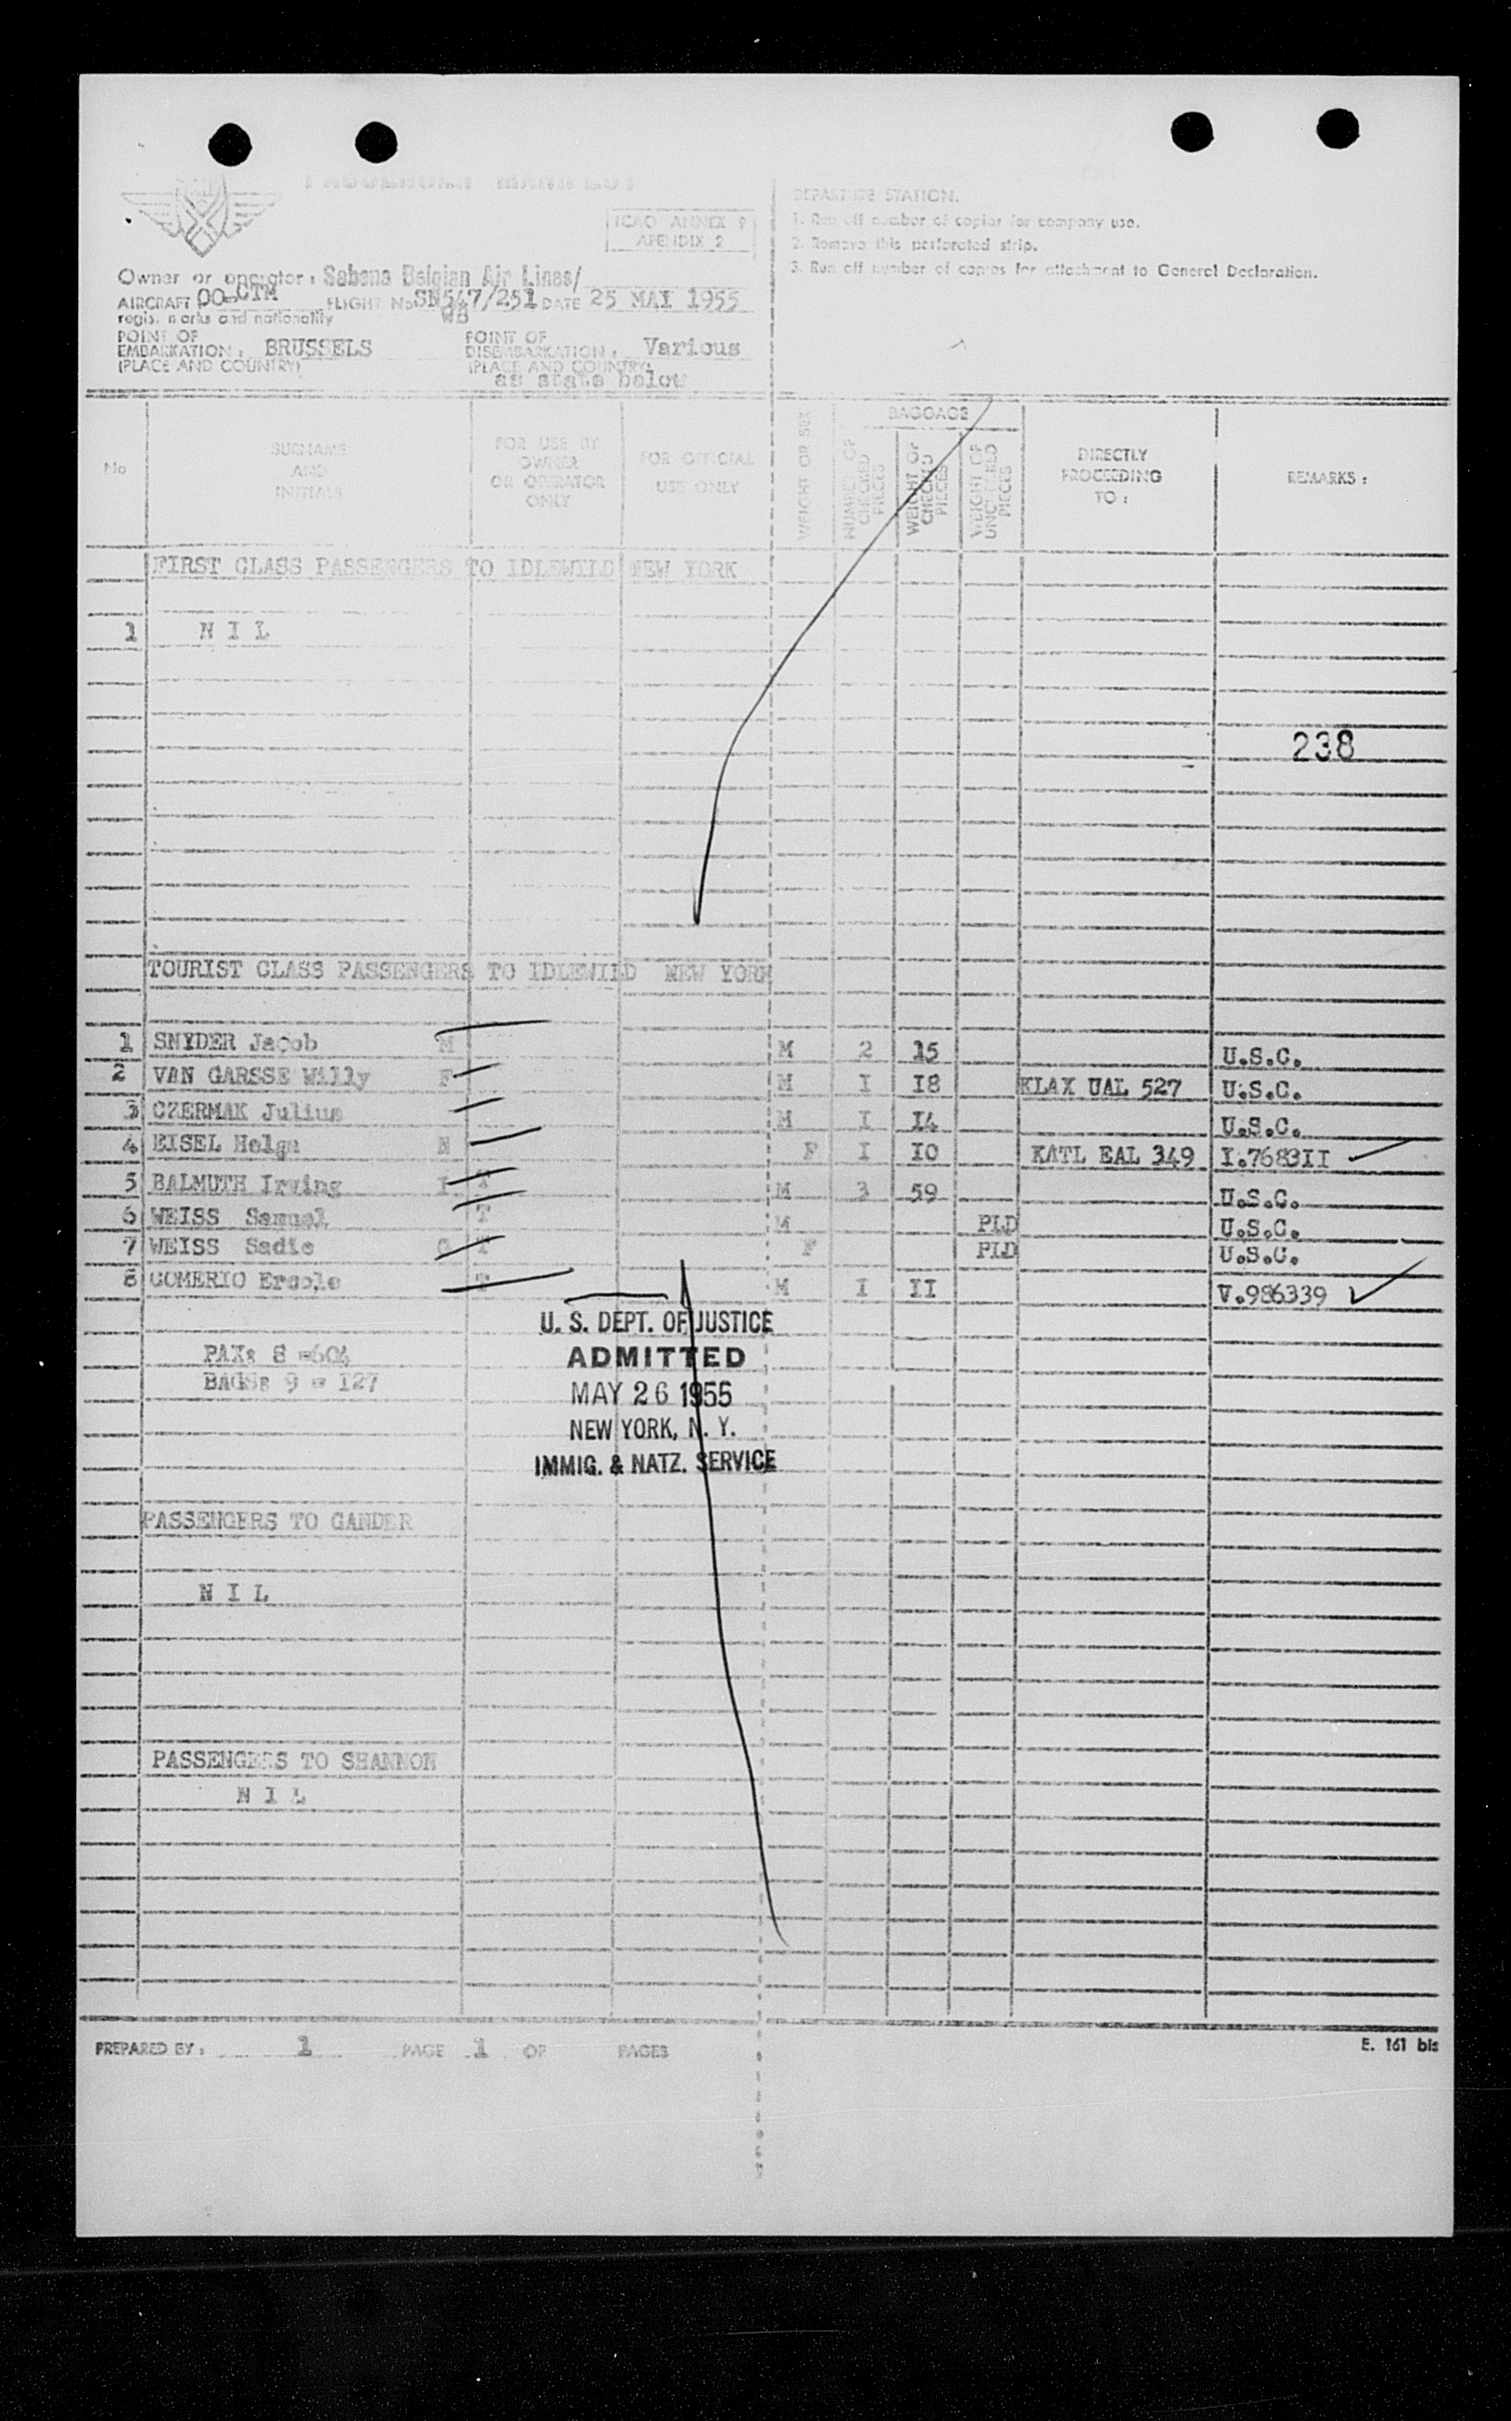 ICAO ANNEX 9
APENDIX 2
DEPARTURE STATION.
1. Run off number of copies for company use.
2. Remove this perforated strip.
3. Run off number of copies for attachment to General Declaration.
Owner or operator : Sabena Belgian Air Lines/
AIRCRAFT OO-CTM FLIGHT No SN547/251 DATE 25 MAI 1955
regis. marks and nationality WB
POINT OF EMBARKATION : BRUSSELS POINT OF DISEMBARKATION : Various
(PLACE AND COUNTRY) (PLACE AND COUNTRY)
as state below
No
SURNAME AND INITIALS
FOR USE BY OWNER OR OPERATOR ONLY
FOR OFFICIAL USE ONLY
WEIGHT OR SEX
BAGGAGE
NUMBER OF CHECKED PIECES
WEIGHT OF CHECKED PIECES
WEIGHT OF UNCHECKED PIECES
DIRECTLY PROCEEDING TO :
REMARKS :
FIRST CLASS PASSENGERS TO IDLEWILD NEW YORK
1 N I L
238
TOURIST CLASS PASSENGERS TO IDLEWILD NEW YORK
1 SNYDER Jacob M M 2 15 U.S.C.
2 VAN GARSSE Willy F M I 18 KLAX UAL 527 U.S.C.
3 CZERMAK Julius M I I4 U.S.C.
4 EISEL Helga N F I IO KATL EAL 349 I.7683II
5 BALMUTH Irving I T M 3 59 U.S.C.
6 WEISS Samuel T M PLD U.S.C.
7 WEISS Sadie G T F PLD U.S.C.
8 COMERIO Ercole T M I II V.986339
U. S. DEPT. OF JUSTICE
ADMITTED
MAY 26 1955
NEW YORK, N. Y.
IMMIG. & NATZ. SERVICE
PAX: 8 =604
BAGS: 9 = 127
PASSENGERS TO GANDER
N I L
PASSENGERS TO SHANNON
N I L
PREPARED BY : 1 PAGE 1 OF PAGES
E. 161 bis